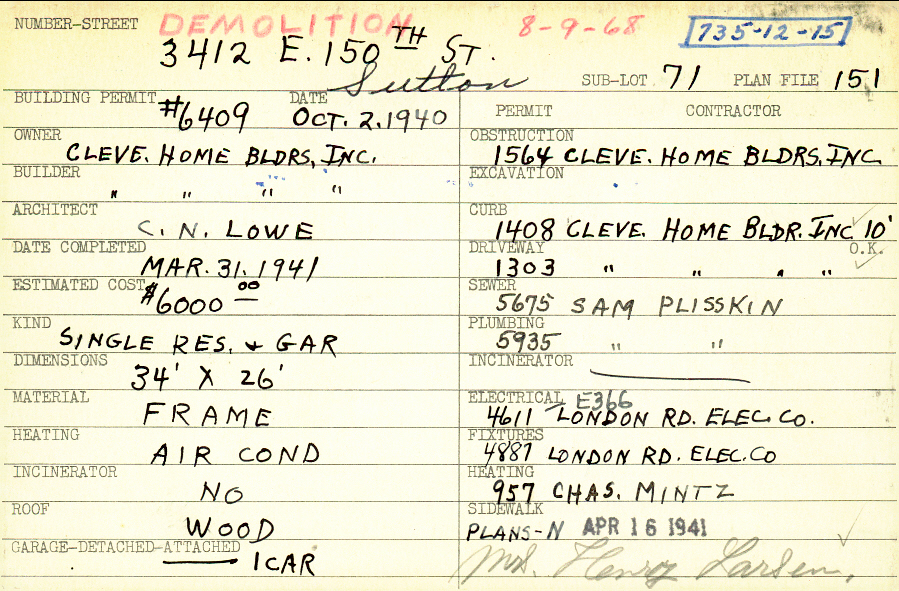 NUMBER-STREET DEMOLITION 8-9-68 735-12-15
3412 E. 150TH ST.
Sutton SUB-LOT 71 PLAN FILE 151
BUILDING PERMIT #6409 DATE OCT. 2. 1940
PERMIT CONTRACTOR
OWNER CLEVE. HOME BLDRS, INC.
OBSTRUCTION 1564 CLEVE. HOME BLDRS. INC
BUILDER " " " "
EXCAVATION
ARCHITECT C. N. LOWE
CURB 1408 CLEVE. HOME BLDR. INC 10'
DATE COMPLETED MAR. 31. 1941
DRIVEWAY 1303 " " " " O.K.
ESTIMATED COST #6000 00
SEWER 5675 SAM PLISSKIN
KIND SINGLE RES. & GAR
PLUMBING 5935 " "
DIMENSIONS 34' X 26'
INCINERATOR
MATERIAL FRAME
ELECTRICAL E366
4611 LONDON RD. ELEC. CO.
HEATING AIR COND
FIXTURES 4887 LONDON RD. ELEC. CO
INCINERATOR NO
HEATING 957 CHAS. MINTZ
ROOF WOOD
SIDEWALK
PLANS-N APR 16 1941
GARAGE-DETACHED-ATTACHED 1 CAR
Mrs. Henry Larsen.